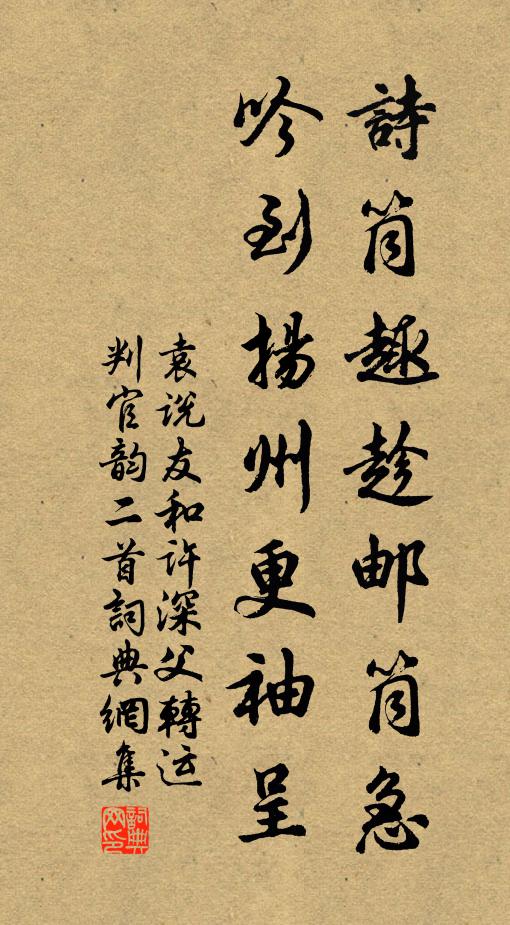 詩筒趣趁邮筒急
吟到揚州更袖呈
袁说友和许深父轉运
判官韵二首詞典網集
詞典网印